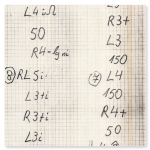 L4i
50
R4-
⑧ RL5i
L3+i
R3+i
L3i
R3+
L3
150
L4
150
R4+
50